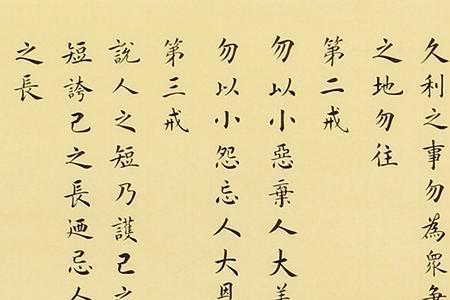 久利之事勿為眾爭
之地勿往
第二戒
勿以小惡棄人大美
勿以小怨忘人大恩
第三戒
說人之短乃護己之
短誇己之長迺忌人
之長